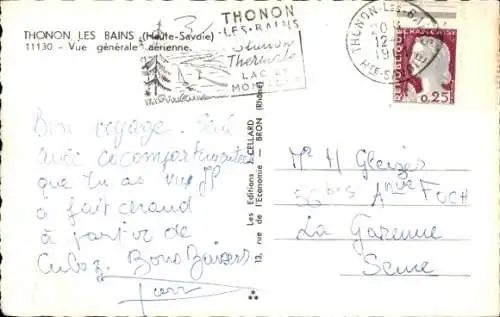 THONON LES BAINS (Haute-Savoie)
11130 - Vue générale aérienne.
THONON
LES-BAINS
Station
Thermale
LAC ET
THONON-LES-BAINS
20
12-
19
HTE-SAVOIE
REPUBLIQUE FRANÇAISE
0,25
Bon voyage.
avec
que tu as vu
a fait chaud
à partir de
Cuboz. Bons Baisers
Les Editions CELLARD
13, rue de l'Economie - BRON (Rhône)
Mr H Gleizes
56 bis Anue FOCH
La Garenne
Seine